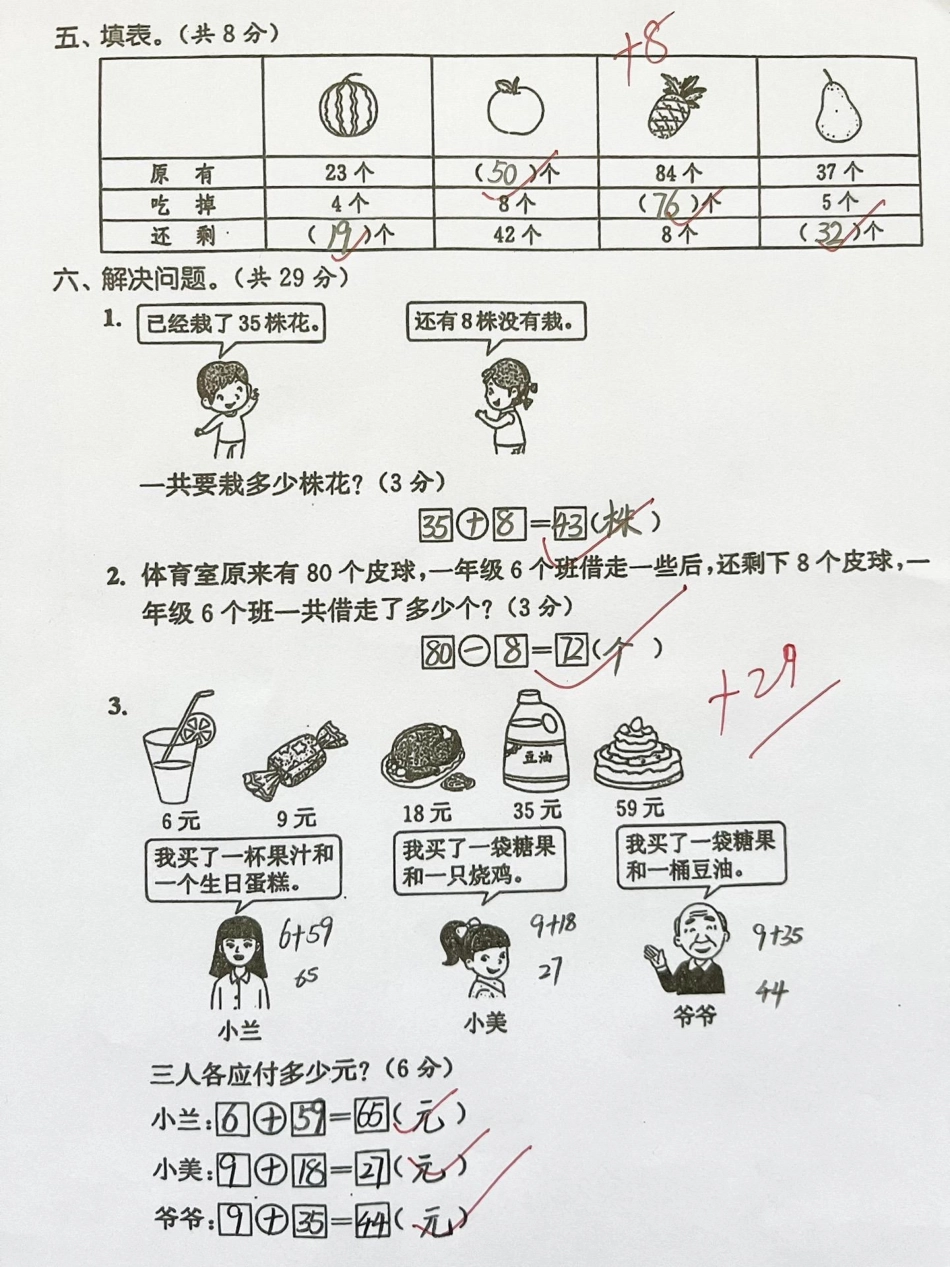 五、填表。（共 8 分）
+8
原 有 23 个 （50）个 84 个 37 个
吃 掉 4 个 8 个 （76）个 5 个
还 剩 （19）个 42 个 8 个 （32）个
六、解决问题。（共 29 分）
1. 已经栽了 35 株花。 还有 8 株没有栽。
一共要栽多少株花？（3 分）
35+8=43（株）
2. 体育室原来有 80 个皮球，一年级 6 个班借走一些后，还剩下 8 个皮球，一
年级 6 个班一共借走了多少个？（3 分）
80-8=72（个）
+29
3.
豆油
6 元 9 元 18 元 35 元 59 元
我买了一杯果汁和 我买了一袋糖果 我买了一袋糖果
一个生日蛋糕。 和一只烧鸡。 和一桶豆油。
6+59 9+18 9+35
65 27 44
小兰 小美 爷爷
三人各应付多少元？（6 分）
小兰：6+59=65（元）
小美：9+18=27（元）
爷爷：9+35=44（元）